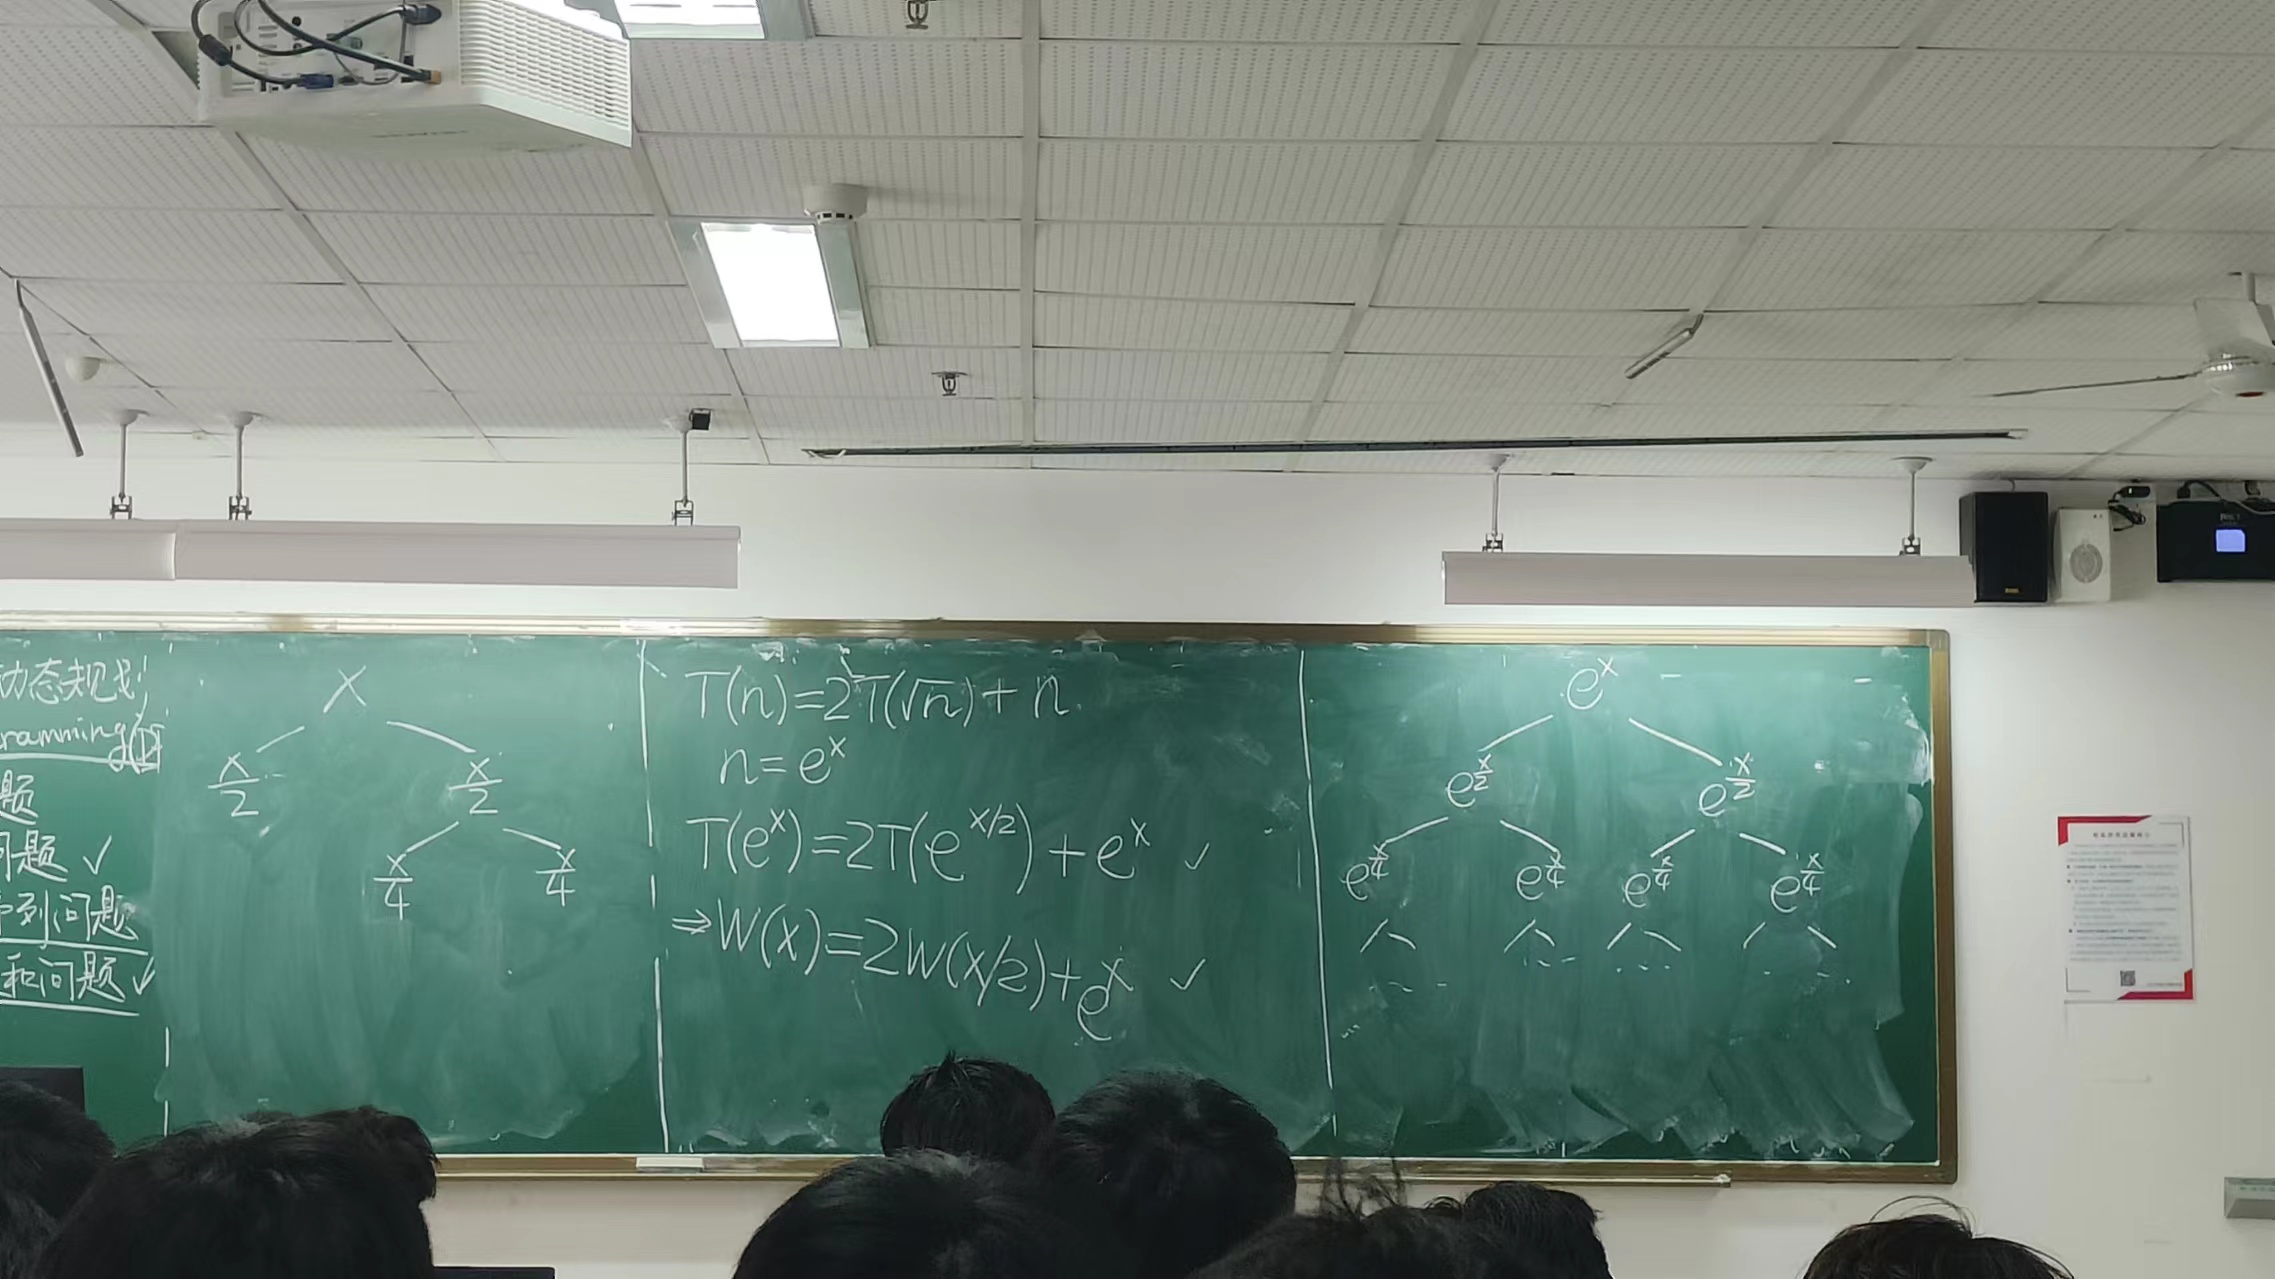 动态规划
ramming
题
问题 ✓
列问题
和问题 ✓
x
x/2 x/2
x/4 x/4
T(n)=2T(√n)+n
n=e^x
T(e^x)=2T(e^{x/2})+e^x ✓
⇒W(x)=2W(x/2)+e^x ✓
e^x
e^{x/2} e^{x/2}
e^{x/4} e^{x/4} e^{x/4} e^{x/4}